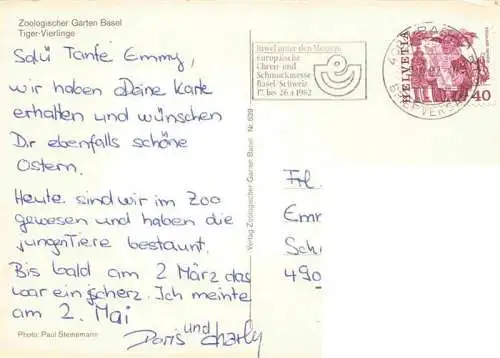 Zoologischer Garten Basel
Tiger-Vierlinge
Salü Tante Emmy,
wir haben Deine Karte
erhalten und wünschen
Dir ebenfalls schöne
Ostern.
Heute sind wir im Zoo
gewesen und haben die
jungenTiere bestaunt.
Bis bald am 2 März das
war ein scherz. Ich meinte
am 2. Mai
Doris und Charly
Photo: Paul Steinemann
Verlag Zoologischer Garten Basel Nr. 639
Juwel unter den Messen
europäische
Uhren- und
Schmuckmesse
Basel/Schweiz
17. bis 26.4.1982
HELVETIA
40
BASEL
BRIEFVERSAND
Frl.
Emm
Sch
490